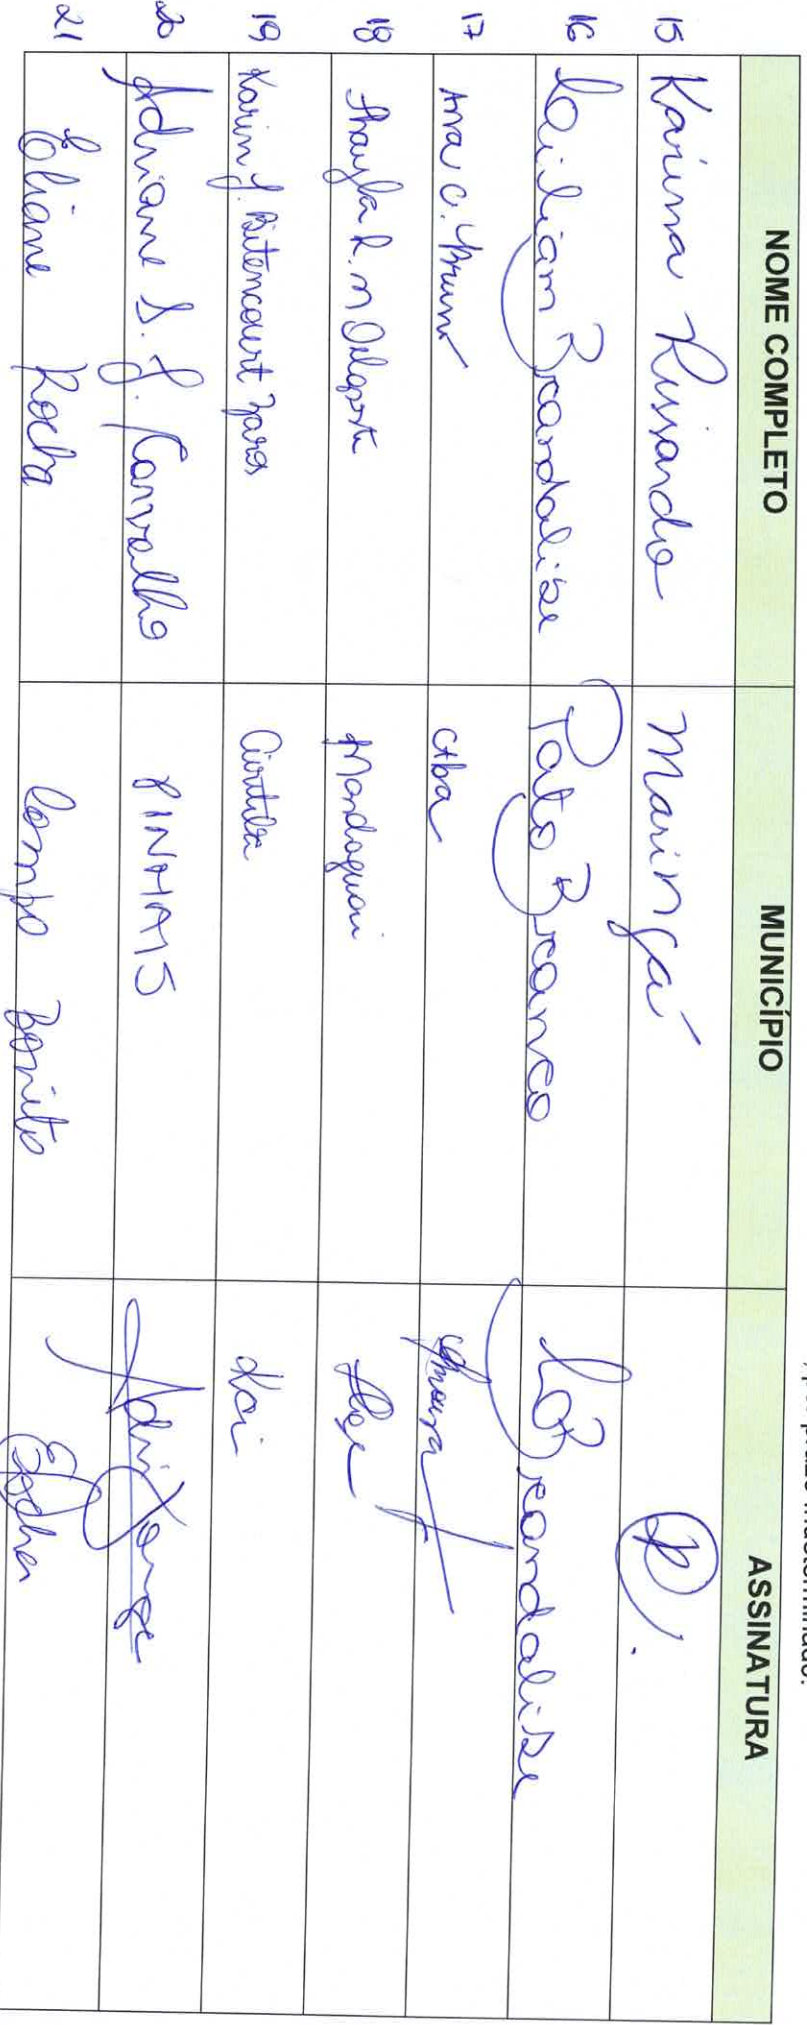 prazo indeterminado.
NOME COMPLETO MUNICÍPIO ASSINATURA
15 Karina Rissardo Maringá
16 Loiliam Brandalise Pato Branco LBrandalise
17 Ana C. Bruno Ctba
18 Thayla R. M Delaporte Mandaguari
19 Karin J. Bitencourt Zaros Curitiba Kari
20 Adriane S. J. Carvalho PINHAIS
21 Eliane Rocha Campo Bonito ERocha